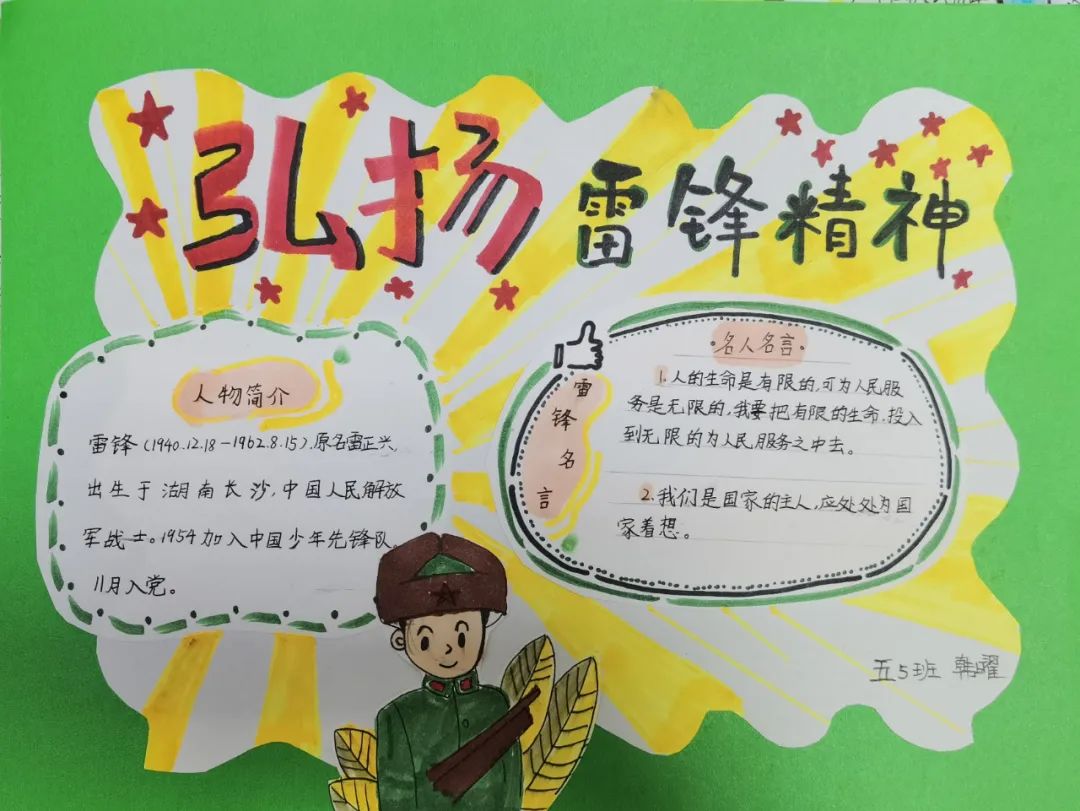 弘扬雷锋精神
人物简介
雷锋(1940.12.18-1962.8.15),原名雷正兴
出生于湖南长沙,中国人民解放
军战士。1954加入中国少年先锋队
11月入党。
雷锋名言
名人名言
1.人的生命是有限的,可为人民服
务是无限的,我要把有限的生命,投入
到无限的为人民服务之中去。
2.我们是国家的主人,应处处为国
家着想。
五5班 韩曜